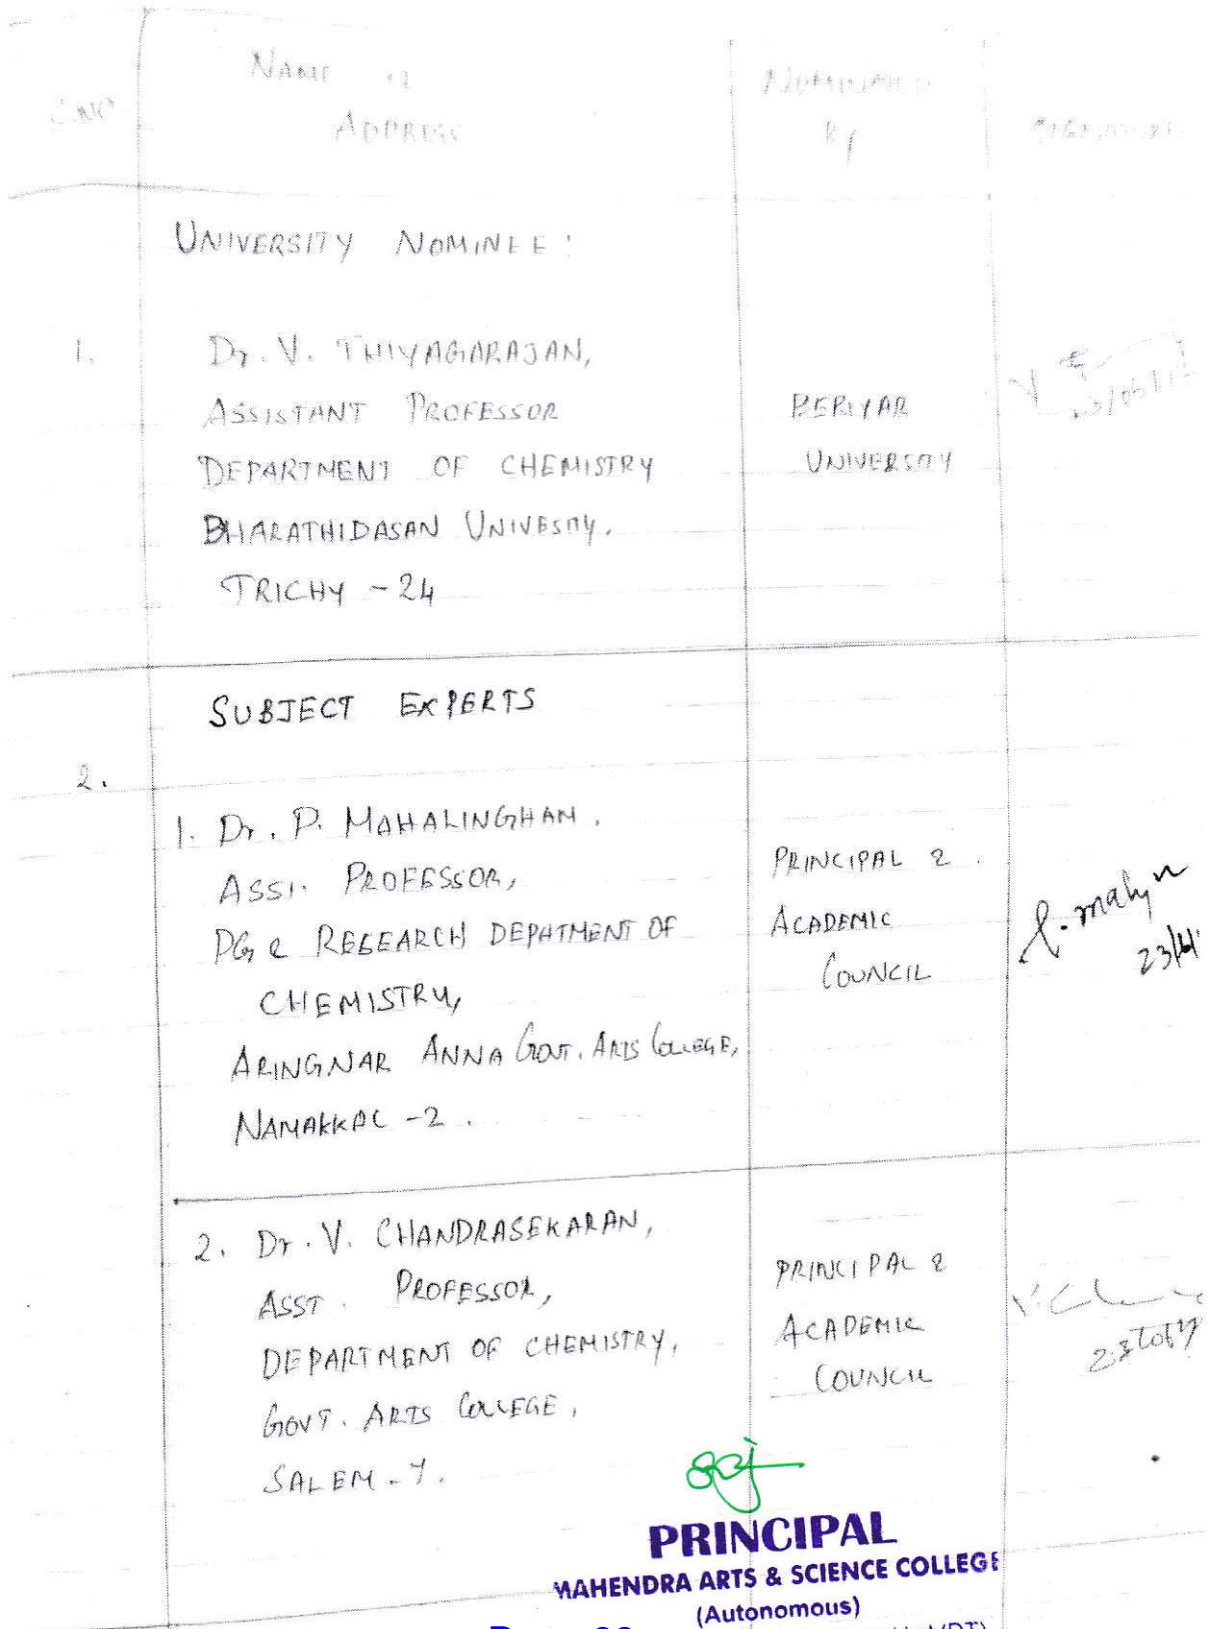 S.NO
NAME &
ADDRESS
NOMINATED
BY
SIGNATURE
UNIVERSITY NOMINEE:
1.
Dr. V. THIYAGARAJAN,
ASSISTANT PROFESSOR
DEPARTMENT OF CHEMISTRY
BHARATHIDASAN UNIVESITY.
TRICHY - 24
PERIYAR
UNIVERSITY
SUBJECT EXPERTS
2.
1. Dr. P. MAHALINGHAM.
ASSI. PROFESSOR,
PG & RESEARCH DEPATMENT OF
CHEMISTRY,
ARINGNAR ANNA GOVT. ARTS COLLEGE,
NAMAKKAL - 2.
PRINCIPAL &
ACADEMIC
COUNCIL
2. Dr. V. CHANDRASEKARAN,
ASST. PROFESSOR,
DEPARTMENT OF CHEMISTRY,
GOVT. ARTS COLLEGE,
SALEM - 7.
PRINCIPAL &
ACADEMIC
COUNCIL
PRINCIPAL
MAHENDRA ARTS & SCIENCE COLLEGE
(Autonomous)